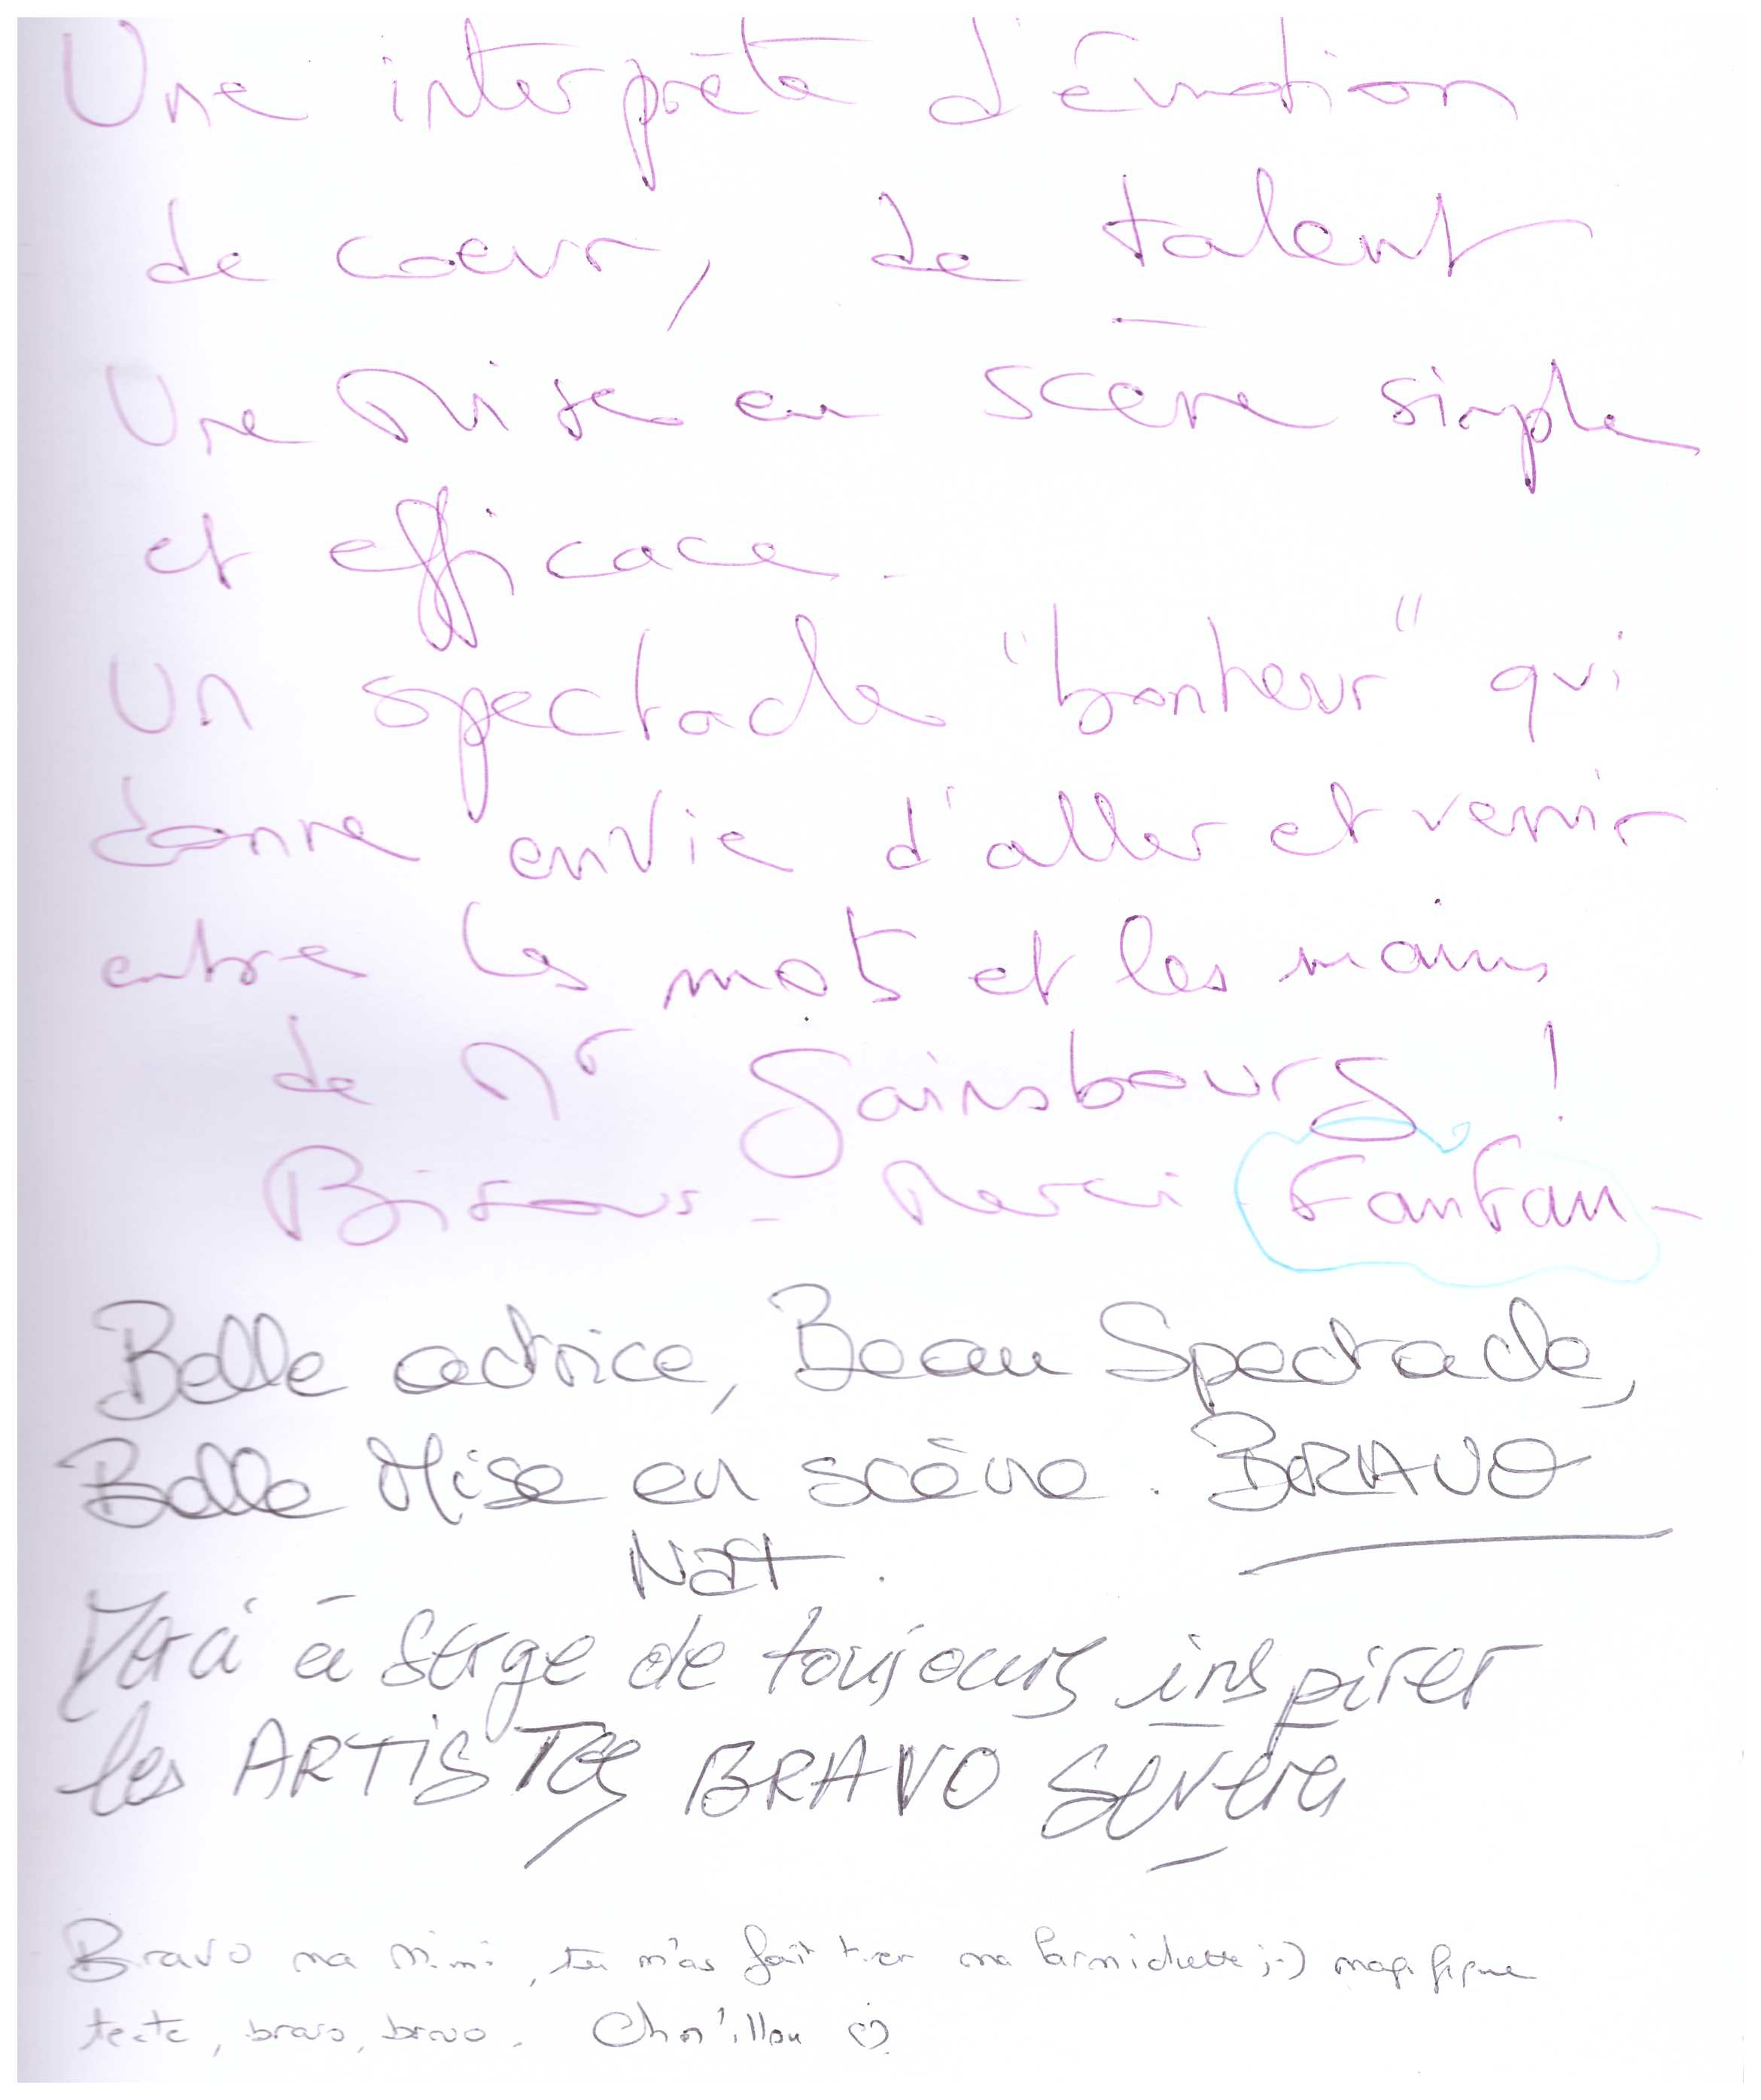 Une interprète d'émotion
de coeur, de talent
Une Mise en scène simple
et efficace.
Un spectacle "bonheur" qui
donne envie d'aller et venir
entre les mots et les mains
de Mr Gainsbourg !
Bisous - Merci FanFan -
Belle actrice, Beau Spectacle,
Belle Mise en scène. BRAVO
Nat.
à Serge de toujours inspirer
les ARTISTES BRAVO
Bravo ma Mimi, tu m'as fait tirer ma larmichette ;-) magnifique
texte, bravo, bravo.